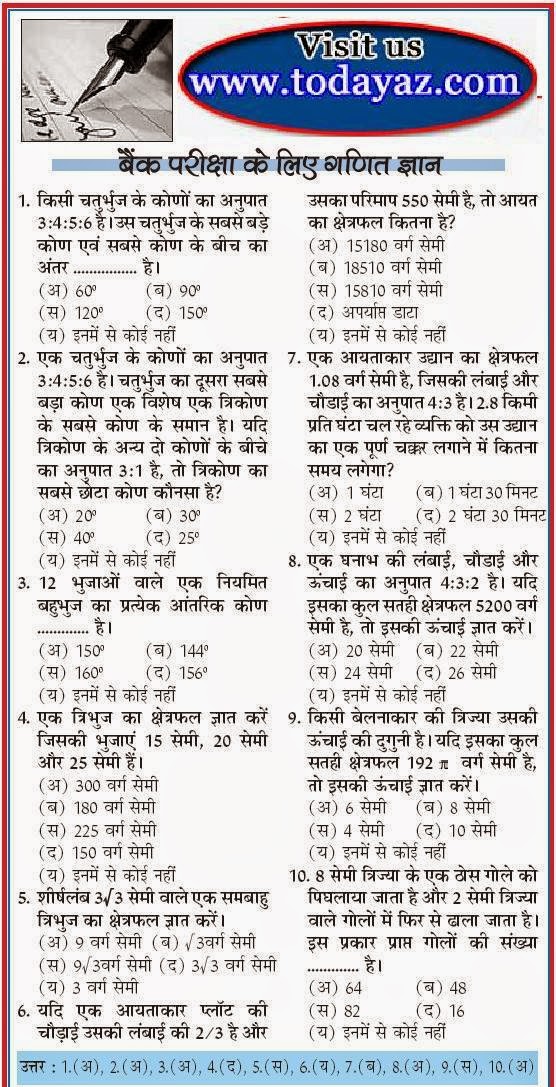 Visit us
www.todayaz.com
बैंक परीक्षा के लिए गणित ज्ञान
1. किसी चतुर्भुज के कोणों का अनुपात
3:4:5:6 है। उस चतुर्भुज के सबसे बड़े
कोण एवं सबसे कोण के बीच का
अंतर ................ है।
(अ) 60⁰ (ब) 90⁰
(स) 120⁰ (द) 150⁰
(य) इनमें से कोई नहीं
2. एक चतुर्भुज के कोणों का अनुपात
3:4:5:6 है। चतुर्भुज का दूसरा सबसे
बड़ा कोण एक विशेष एक त्रिकोण
के सबसे कोण के समान है। यदि
त्रिकोण के अन्य दो कोणों के बीचे
का अनुपात 3:1 है, तो त्रिकोण का
सबसे छोटा कोण कौनसा है?
(अ) 20⁰ (ब) 30⁰
(स) 40⁰ (द) 25⁰
(य) इनमें से कोई नहीं
3. 12 भुजाओं वाले एक नियमित
बहुभुज का प्रत्येक आंतरिक कोण
............. है।
(अ) 150⁰ (ब) 144⁰
(स) 160⁰ (द) 156⁰
(य) इनमें से कोई नहीं
4. एक त्रिभुज का क्षेत्रफल ज्ञात करें
जिसकी भुजाएं 15 सेमी, 20 सेमी
और 25 सेमी हैं।
(अ) 300 वर्ग सेमी
(ब) 180 वर्ग सेमी
(स) 225 वर्ग सेमी
(द) 150 वर्ग सेमी
(य) इनमें से कोई नहीं
5. शीर्षलंब 3√3 सेमी वाले एक समबाहु
त्रिभुज का क्षेत्रफल ज्ञात करें।
(अ) 9 वर्ग सेमी (ब) √3वर्ग सेमी
(स) 9√3वर्ग सेमी (द) 3√3 वर्ग सेमी
(य) 3 वर्ग सेमी
6. यदि एक आयताकार प्लॉट की
चौड़ाई उसकी लंबाई की 2/3 है और
उसका परिमाप 550 सेमी है, तो आयत
का क्षेत्रफल कितना है?
(अ) 15180 वर्ग सेमी
(ब) 18510 वर्ग सेमी
(स) 15810 वर्ग सेमी
(द) अपर्याप्त डाटा
(य) इनमें से कोई नहीं
7. एक आयताकार उद्यान का क्षेत्रफल
1.08 वर्ग सेमी है, जिसकी लंबाई और
चौडाई का अनुपात 4:3 है। 2.8 किमी
प्रति घंटा चल रहे व्यक्ति को उस उद्यान
का एक पूर्ण चक्कर लगाने में कितना
समय लगेगा?
(अ) 1 घंटा (ब) 1 घंटा 30 मिनट
(स) 2 घंटा (द) 2 घंटा 30 मिनट
(य) इनमें से कोई नहीं
8. एक घनाभ की लंबाई, चौडाई और
ऊंचाई का अनुपात 4:3:2 है। यदि
इसका कुल सतही क्षेत्रफल 5200 वर्ग
सेमी है, तो इसकी ऊंचाई ज्ञात करें।
(अ) 20 सेमी (ब) 22 सेमी
(स) 24 सेमी (द) 26 सेमी
(य) इनमें से कोई नहीं
9. किसी बेलनाकार की त्रिज्या उसकी
ऊंचाई की दुगुनी है। यदि इसका कुल
सतही क्षेत्रफल 192 π वर्ग सेमी है,
तो इसकी ऊंचाई ज्ञात करें।
(अ) 6 सेमी (ब) 8 सेमी
(स) 4 सेमी (द) 10 सेमी
(य) इनमें से कोई नहीं
10. 8 सेमी त्रिज्या के एक ठोस गोले को
पिघलाया जाता है और 2 सेमी त्रिज्या
वाले गोलों में फिर से ढाला जाता है।
इस प्रकार प्राप्त गोलों की संख्या
............. है।
(अ) 64 (ब) 48
(स) 82 (द) 16
(य) इनमें से कोई नहीं
उत्तर : 1.(अ), 2.(अ), 3.(अ), 4.(द), 5.(स), 6.(य), 7.(ब), 8.(अ), 9.(स), 10.(अ)